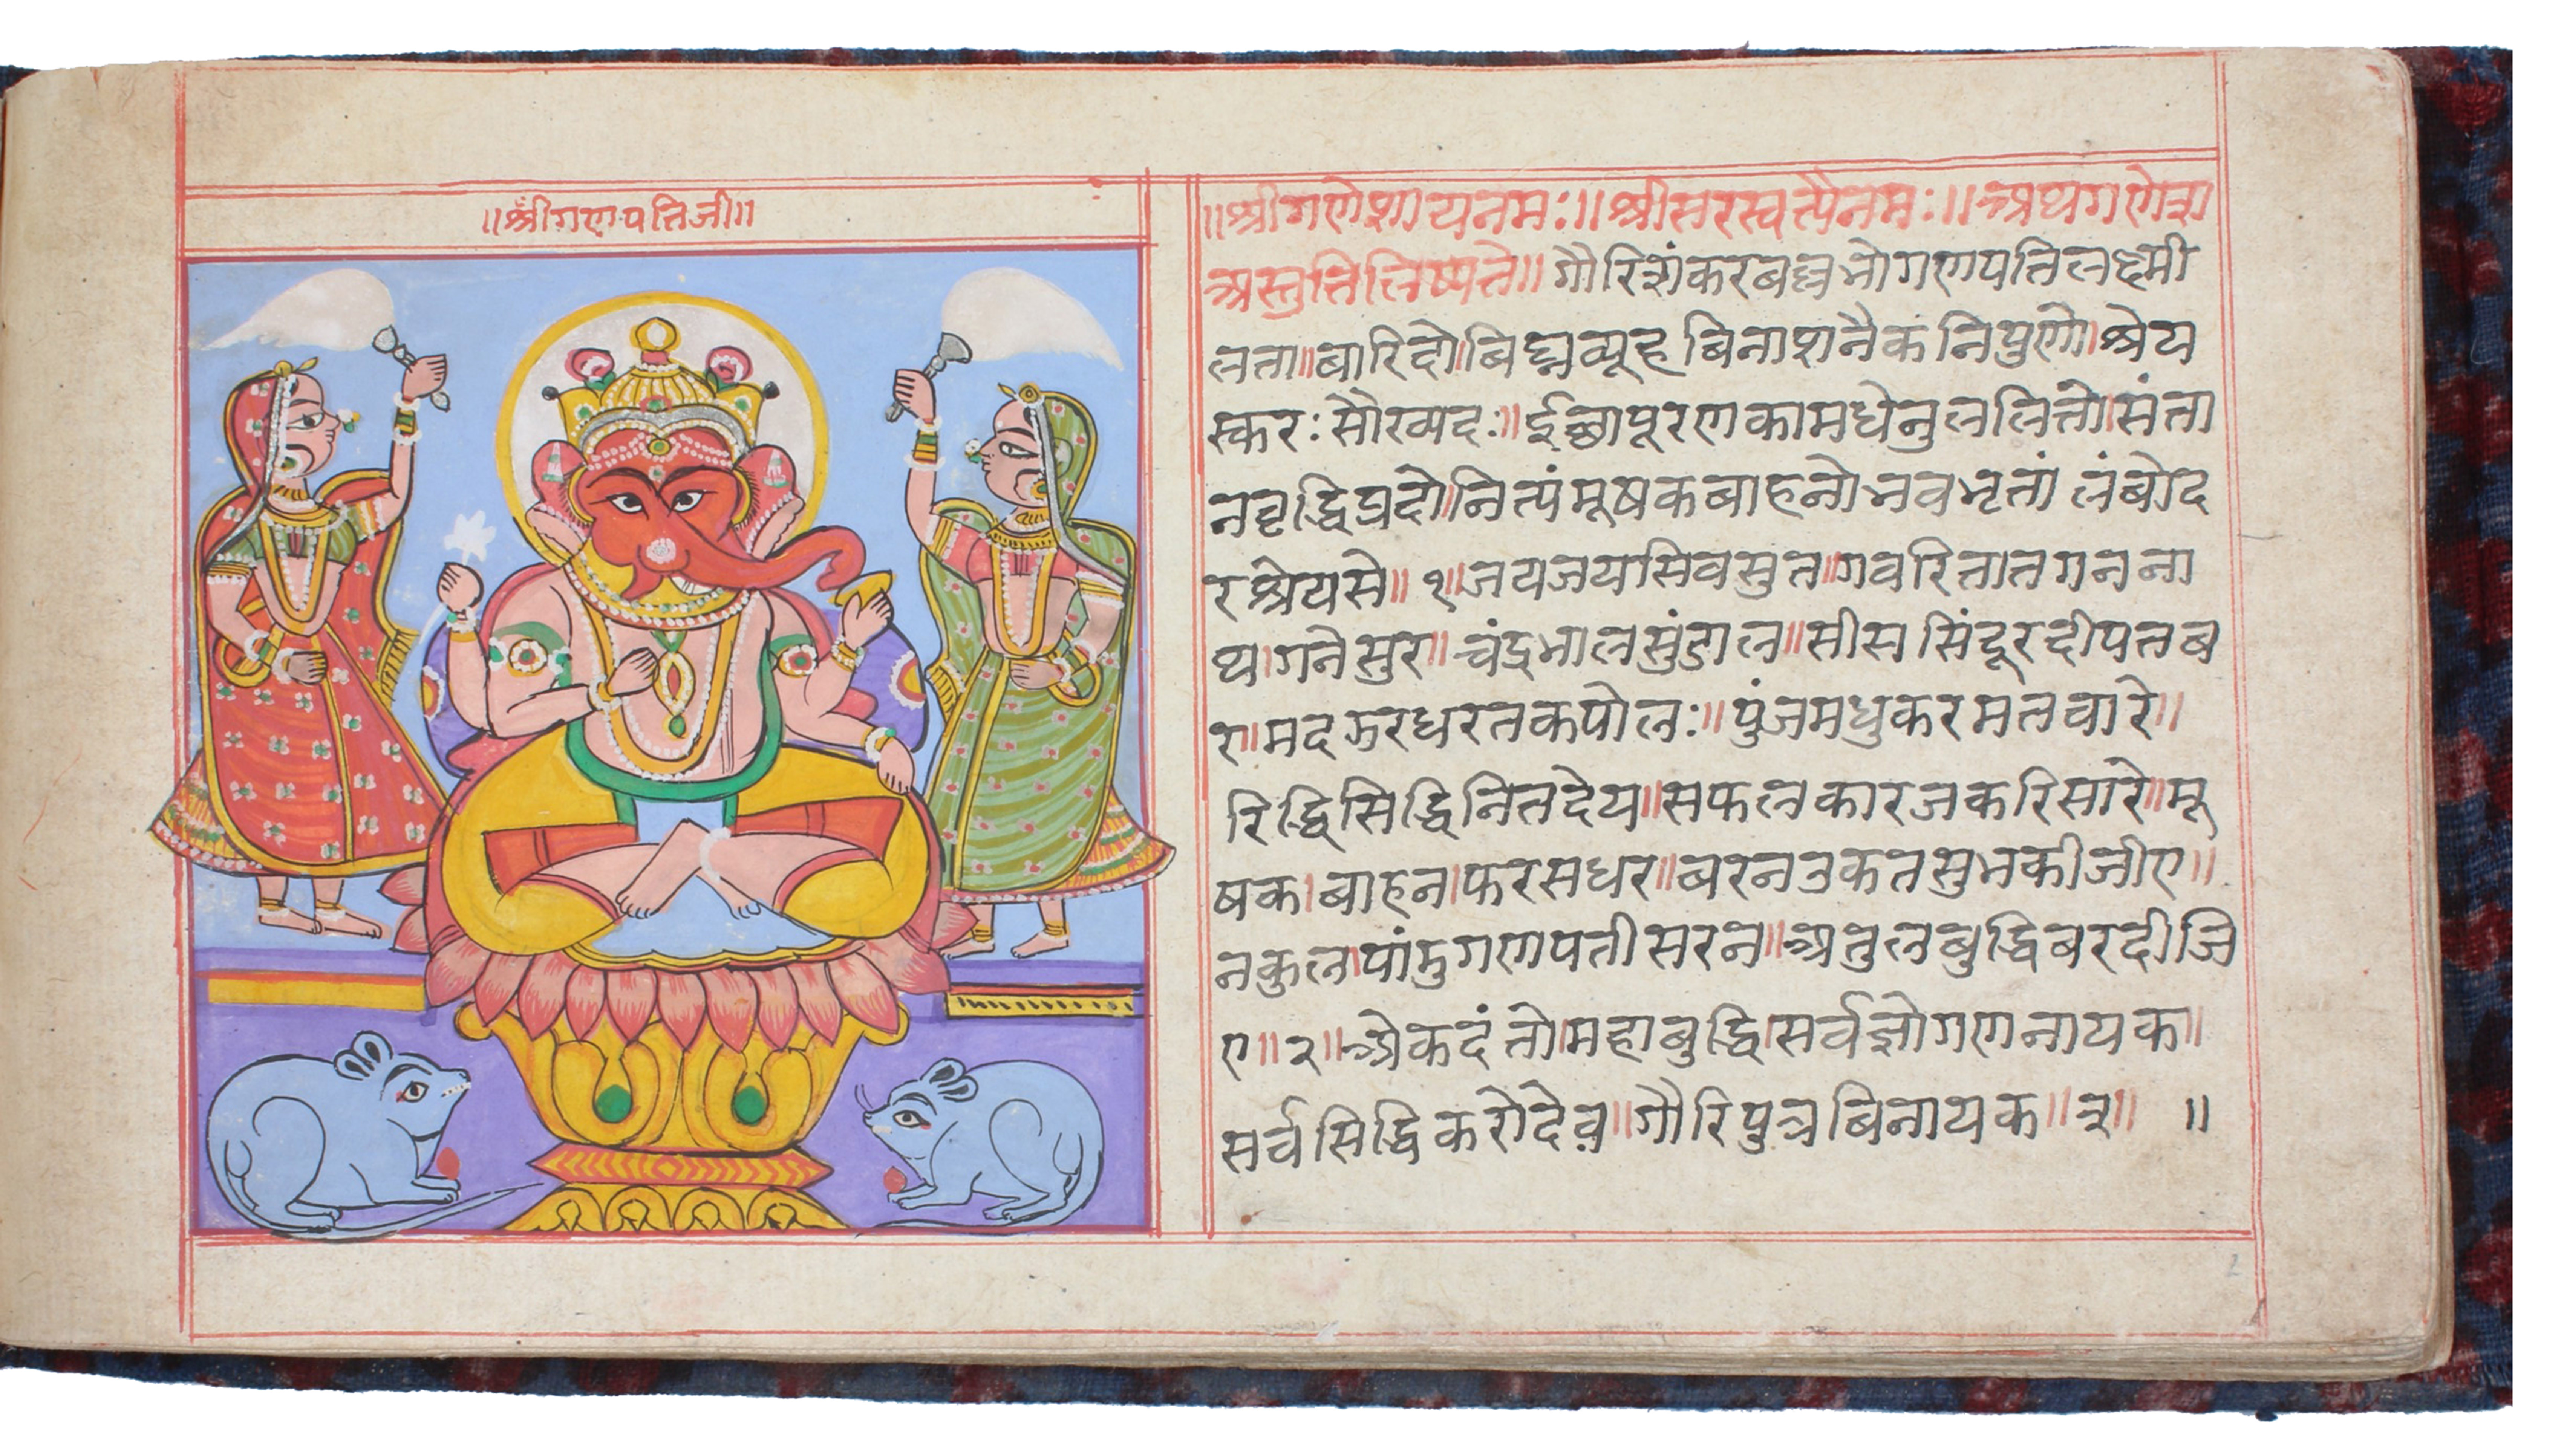 ॥श्रीगणपतिजी॥
॥श्रीगणेशायनमः॥श्रीसरस्वत्यैनमः॥अथगणेश
अस्तुतिलिष्यते॥गौरिशंकरबल्लभोगणपतिलक्ष्मी
लता॥बारिदो॥बिघ्नब्यूहबिनाशनैकनिपुणो।श्रेय
स्करःसौख्यदः॥ईछापूरणकामधेनुललितो।संता
नबृद्धिप्रदो।नित्यंमूषकबाहनोभवभृतां लंबोद
रश्रेयसे॥१॥जयजयसिवसुत॥गवरितातगनना
थ।गनेसुर॥चंद्रभालसुंडाल॥सीससिंदूरदीपतब
र॥मदझरधरतकपोलः॥पुंजमधुकरमतवारे॥
रिद्धिसिद्धिनितदेय॥सफलकारजकरिसारे॥मू
षक।बाहन।फरसधर॥बरनउकतसुभकीजीए॥
नकुलपांडुगणपतीसरन॥अतुलबुद्धिबरदीजि
ए॥२॥ओकदंतो।महाबुद्धि।सर्वज्ञोगणनायक॥
सर्वसिद्धिकरोदेव॥गौरिपुत्रबिनायक॥३॥ ॥